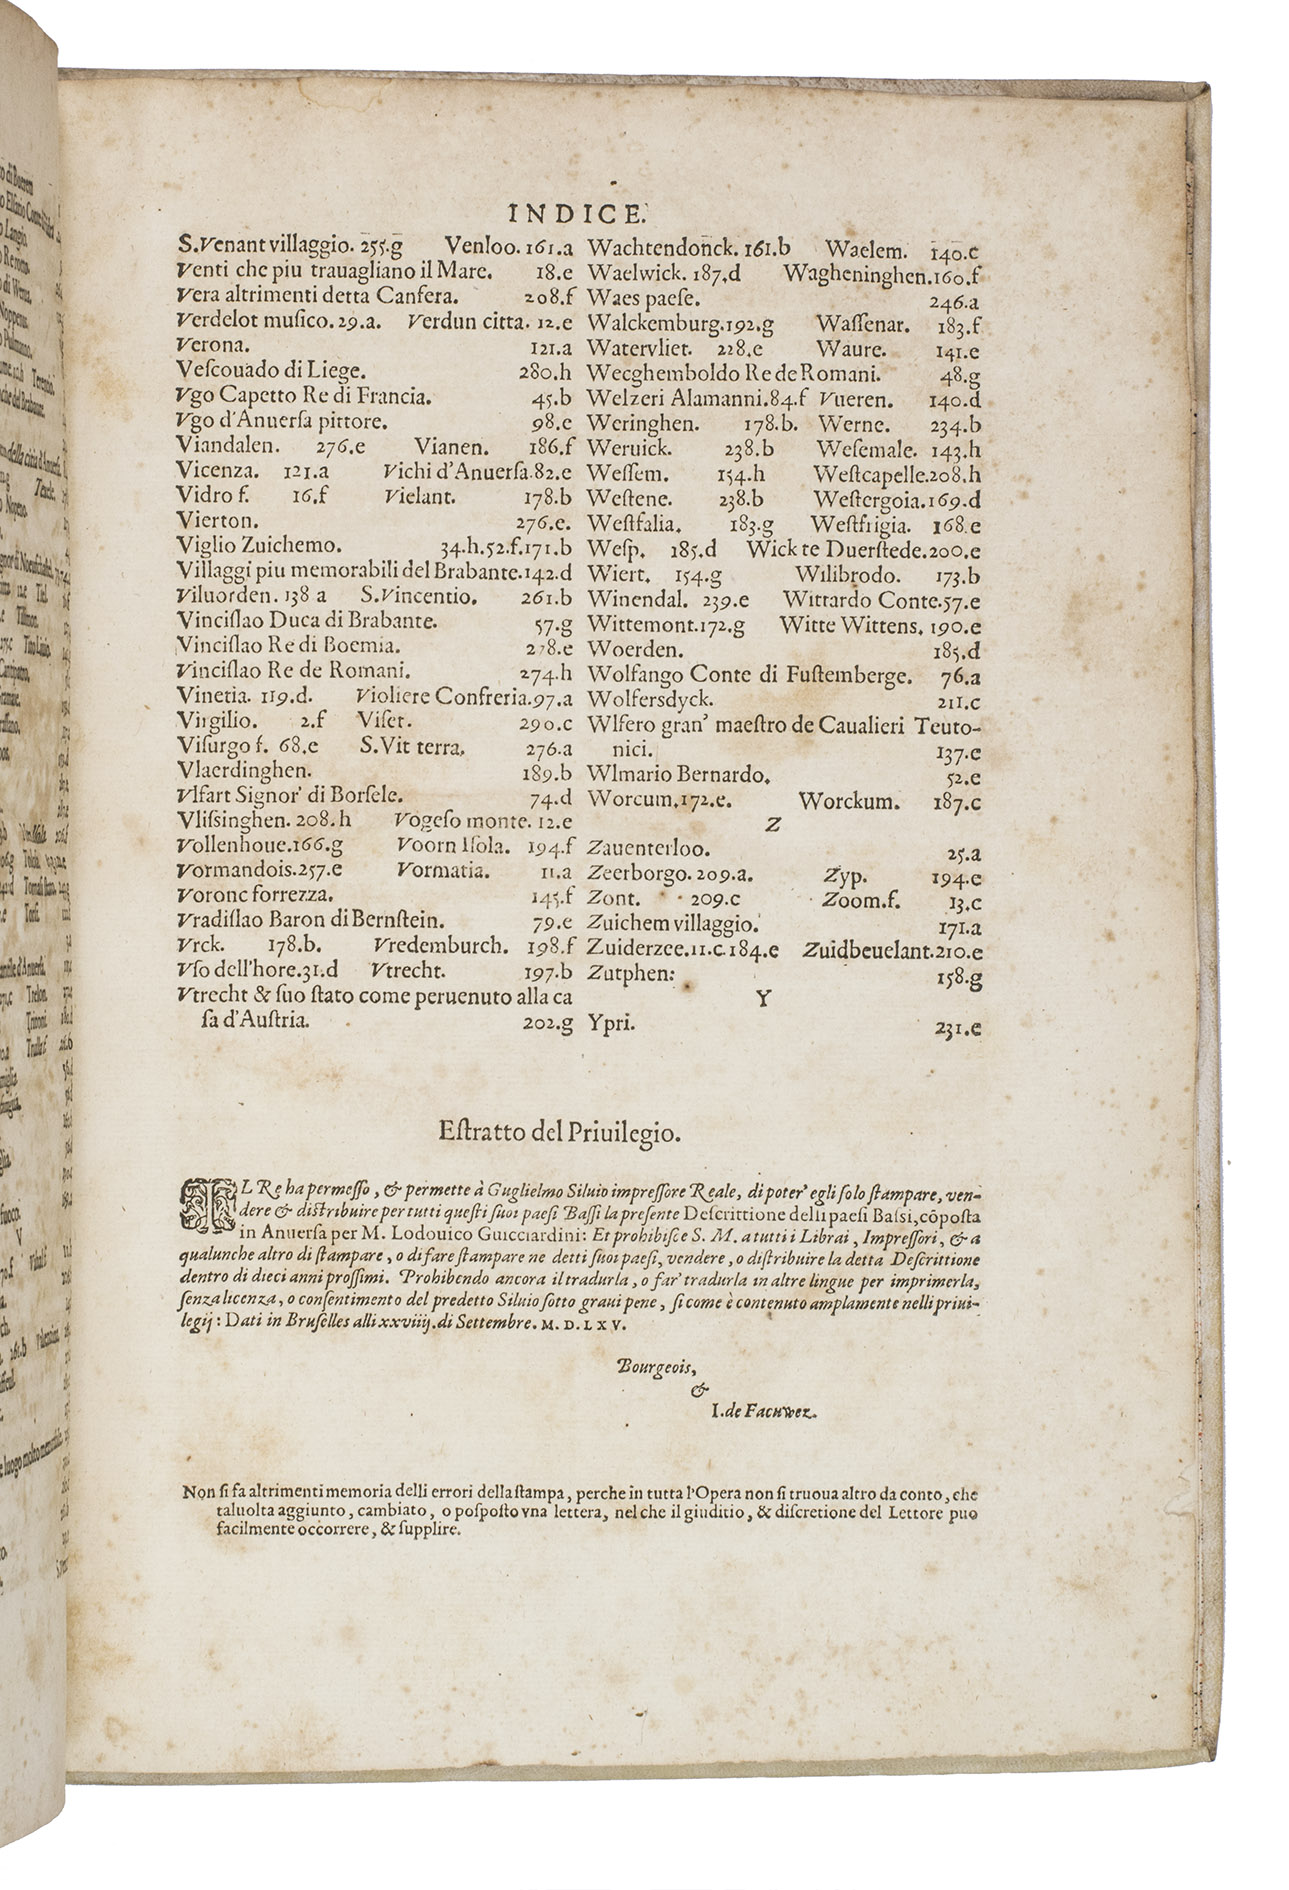 INDICE.
S. Venant villaggio. 255.g Venloo. 161.a
Venti che piu trauagliano il Mare. 18.e
Vera altrimenti detta Canfera. 208.f
Verdelot musico. 29.a. Verdun citta. 12.e
Verona. 121.a
Veſcouado di Liege. 280.h
Vgo Capetto Re di Francia. 45.b
Vgo d'Anuerſa pittore. 98.e
Viandalen. 276.e Vianen. 186.f
Vicenza. 121.a Vichi d'Anuerſa.82.e
Vidro f. 16.f Vielant. 178.b
Vierton. 276.e.
Viglio Zuichemo. 34.h.52.f.171.b
Villaggi piu memorabili del Brabante.142.d
Viluorden. 138 a S.Vincentio. 261.b
Vinciſlao Duca di Brabante. 57.g
Vinciſlao Re di Boemia. 278.e
Vinciſlao Re de Romani. 274.h
Vinetia. 119.d. Violiere Confreria.97.a
Virgilio. 2.f Viſet. 290.c
Viſurgo f. 68.e S.Vit terra. 276.a
Vlaerdinghen. 189.b
Vlfart Signor' di Borſele. 74.d
Vliſsinghen. 208.h Vogeſo monte. 12.e
Vollenhoue.166.g Voorn Iſola. 194.f
Vormandois.257.e Vormatia. 11.a
Voronc forrezza. 145.f
Vradiſlao Baron di Bernſtein. 79.e
Vrck. 178.b. Vredemburch. 198.f
Vſo dell'hore.31.d Vtrecht. 197.b
Vtrecht & ſuo ſtato come peruenuto alla ca
ſa d'Auſtria. 202.g
Wachtendonck. 161.b Waelem. 140.c
Waelwick. 187.d Wagheninghen.160.f
Waes paeſe. 246.a
Walckemburg.192.g Waſſenar. 183.f
Watervliet. 228.e Waure. 141.e
Wecghemboldo Re de Romani. 48.g
Welzeri Alamanni.84.f Vueren. 140.d
Weringhen. 178.b. Werne. 234.b
Weruick. 238.b Weſemale. 143.h
Weſſem. 154.h Weſtcapelle.208.h
Weſtene. 238.b Weſtergoia.169.d
Weſtfalia. 183.g Weſtfrigia. 168.e
Weſp. 185.d Wick te Duerſtede.200.e
Wiert. 154.g Wilibrodo. 173.b
Winendal. 239.e Wittardo Conte.57.e
Wittemont.172.g Witte Wittens. 190.e
Woerden. 185.d
Wolfango Conte di Fuſtemberge. 76.a
Wolfersdyck. 211.c
Wlfero gran' maeſtro de Caualieri Teuto-
nici. 137.e
Wlmario Bernardo. 52.e
Worcum.172.e. Worckum. 187.c
Z
Zauenterloo. 25.a
Zeerborgo. 209.a. Zyp. 194.e
Zont. 209.c Zoom.f. 13.c
Zuichem villaggio. 171.a
Zuiderzee.11.c.184.e Zuidbeuelant.210.e
Zutphen: 158.g
Y
Ypri. 231.e
Eſtratto del Priuilegio.
IL Re ha permeſſo, & permette à Guglielmo Siluio impreſſore Reale, di poter' egli ſolo ſtampare, ven-
dere & diſtribuire per tutti queſti ſuoi paeſi Baſſi la preſente Deſcrittione delli paeſi Baſsi, cōpoſta
in Anuerſa per M. Lodouico Guicciardini: Et prohibiſce S. M. a tutti i Librai, Impreſſori, & a
qualunche altro di ſtampare, o di fare ſtampare ne detti ſuoi paeſi, vendere, o diſtribuire la detta Deſcrittione
dentro di dieci anni proſſimi. Prohibendo ancora il tradurla, o far' tradurla in altre lingue per imprimerla,
ſenza licenza, o conſentimento del predetto Siluio ſotto graui pene, ſi come è contenuto amplamente nelli priui-
legij: Dati in Bruſelles alli xxviiij. di Settembre. M. D. LXV.
Bourgeois,
&
I. de Facuwez.
Non ſi fa altrimenti memoria delli errori della ſtampa, perche in tutta l'Opera non ſi truoua altro da conto, che
taluolta aggiunto, cambiato, o poſpoſto vna lettera, nel che il giuditio, & diſcretione del Lettore puo
facilmente occorrere, & ſupplire.